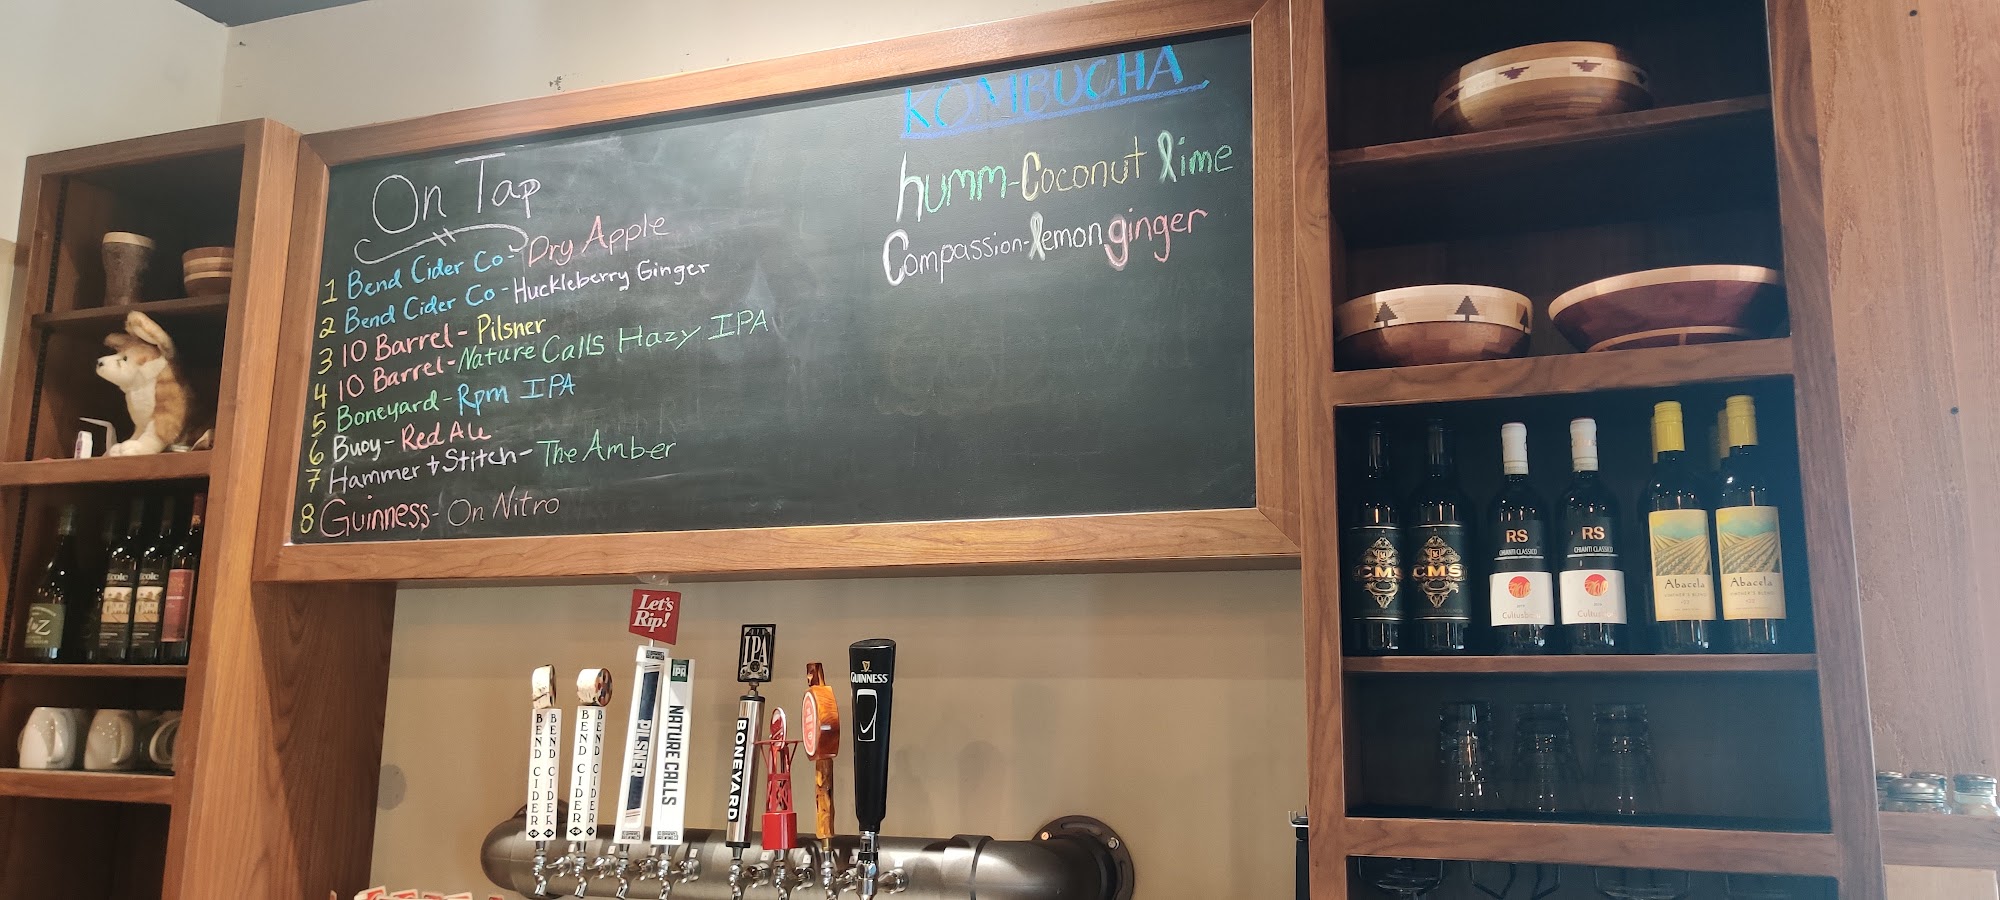 On Tap
1 Bend Cider Co - Dry Apple
2 Bend Cider Co - Huckleberry Ginger
3 10 Barrel - Pilsner
4 10 Barrel - Nature Calls Hazy IPA
5 Boneyard - Rpm IPA
6 Buoy - Red Ale
7 Hammer + Stitch - The Amber
8 Guinness - On Nitro
KOMBUCHA
humm - Coconut lime
Compassion - lemon ginger
Let's
Rip!
BEND CIDER
BEND CIDER
BEND CIDER
BEND CIDER
PILSNER
IPA
NATURE CALLS
IPA
BONEYARD
GUINNESS
CMS
CMS
RS
CHIANTI CLASSICO
RS
CHIANTI CLASSICO
Abacela
Abacela